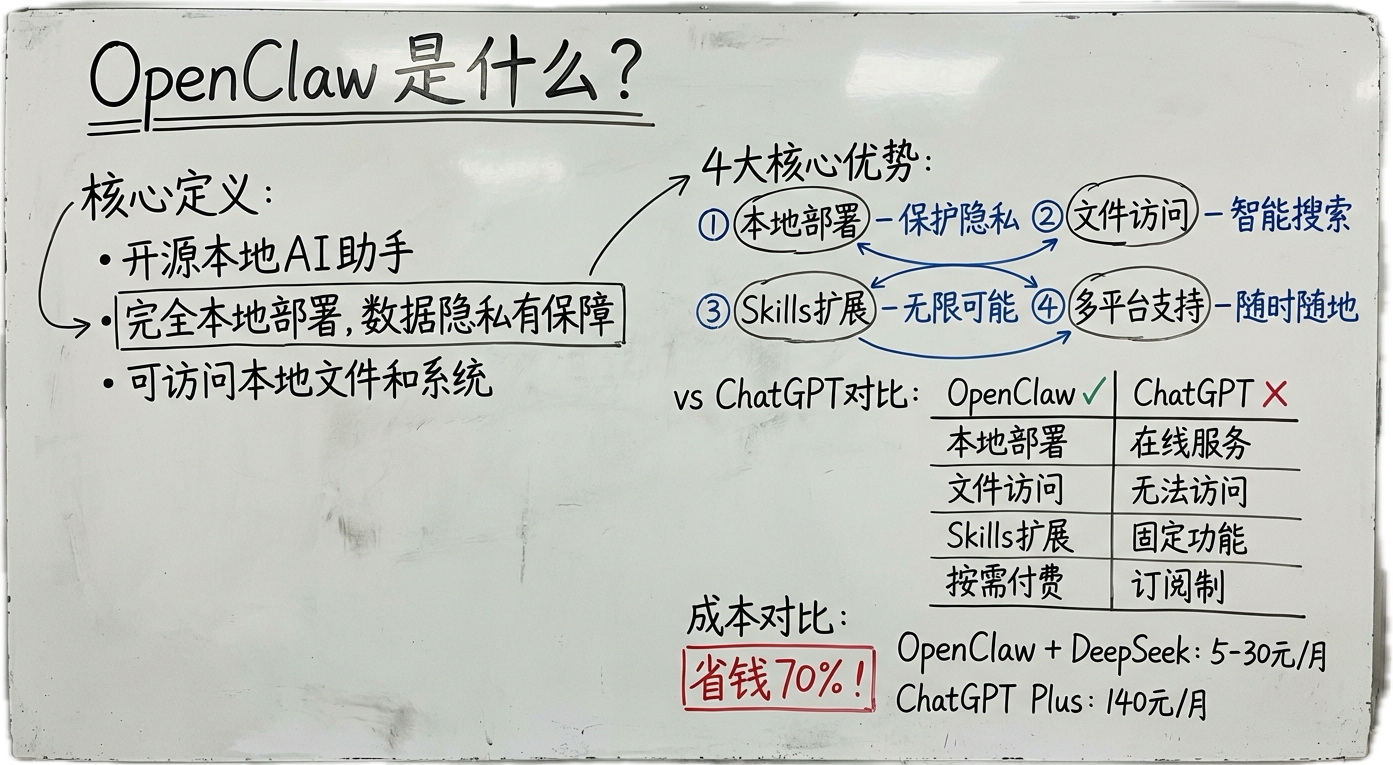 OpenClaw 是什么?
核心定义:
• 开源本地AI助手
• 完全本地部署, 数据隐私有保障
• 可访问本地文件和系统
4大核心优势:
① 本地部署 – 保护隐私 ② 文件访问 – 智能搜索
③ Skills扩展 – 无限可能 ④ 多平台支持 – 随时随地
vs ChatGPT对比:
OpenClaw ✓ ChatGPT ✗
本地部署 在线服务
文件访问 无法访问
Skills扩展 固定功能
按需付费 订阅制
成本对比:
省钱70%!
OpenClaw + DeepSeek: 5-30元/月
ChatGPT Plus: 140元/月